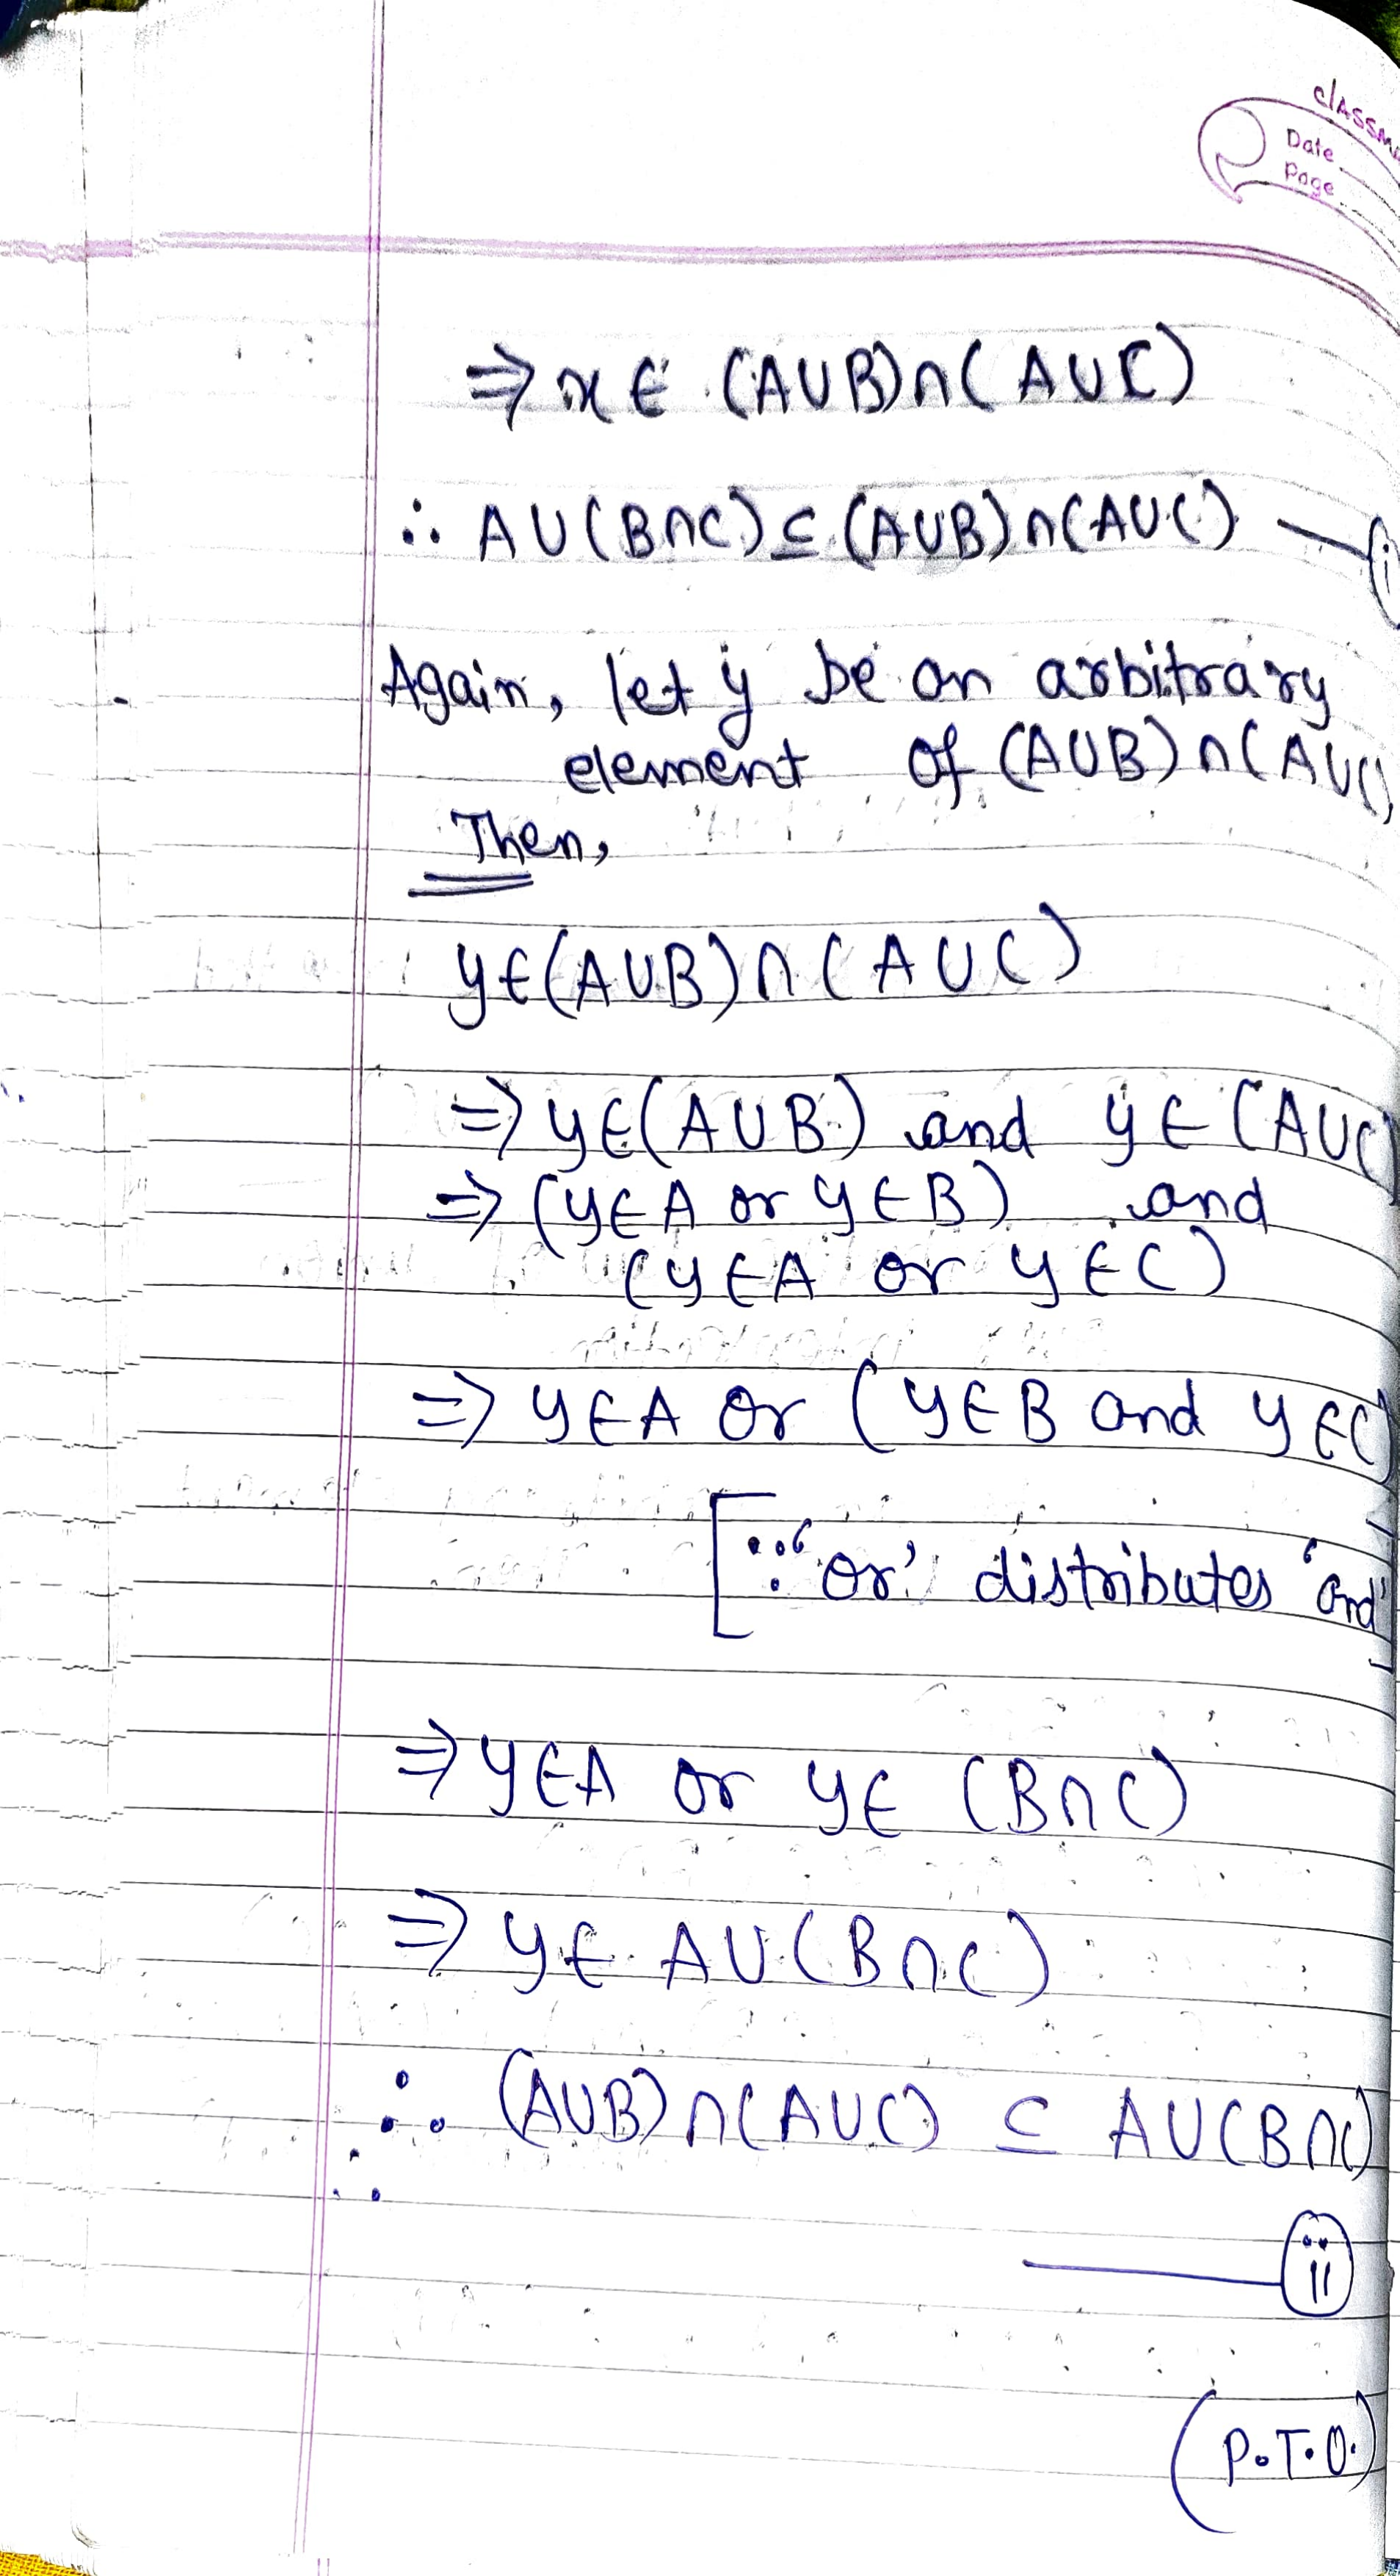 classma
Date
Page
⇒ x ∈ (A∪B)∩(A∪C)
∴ A∪(B∩C) ⊆ (A∪B)∩(A∪C) — (i
Again, let y be an arbitrary
element of (A∪B)∩(A∪C)
Then,
y∈(A∪B)∩(A∪C)
⇒ y∈(A∪B) and y∈(A∪C)
⇒ (y∈A or y∈B) and
(y∈A or y∈C)
⇒ y∈A or (y∈B and y∈C)
[∵ 'or' distributes 'and']
⇒ y∈A or y∈ (B∩C)
⇒ y∈ A∪(B∩C)
∴ (A∪B)∩(A∪C) ⊆ A∪(B∩C)
— (ii)
(P.T.O.)